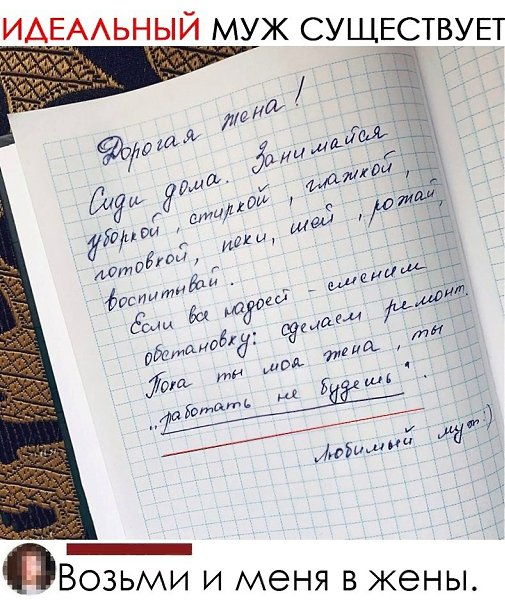 ИДЕАЛЬНЫЙ МУЖ СУЩЕСТВУЕТ
Дорогая жена!
Сиди дома. Занимайся
уборкой, стиркой, глажкой,
готовкой, пеки, шей, рожай,
воспитывай.
Если все надоест - сменим
обстановку: сделаем ремонт.
Пока ты моя жена, ты
„работать не будешь".
Любимый муж:)
Возьми и меня в жены.